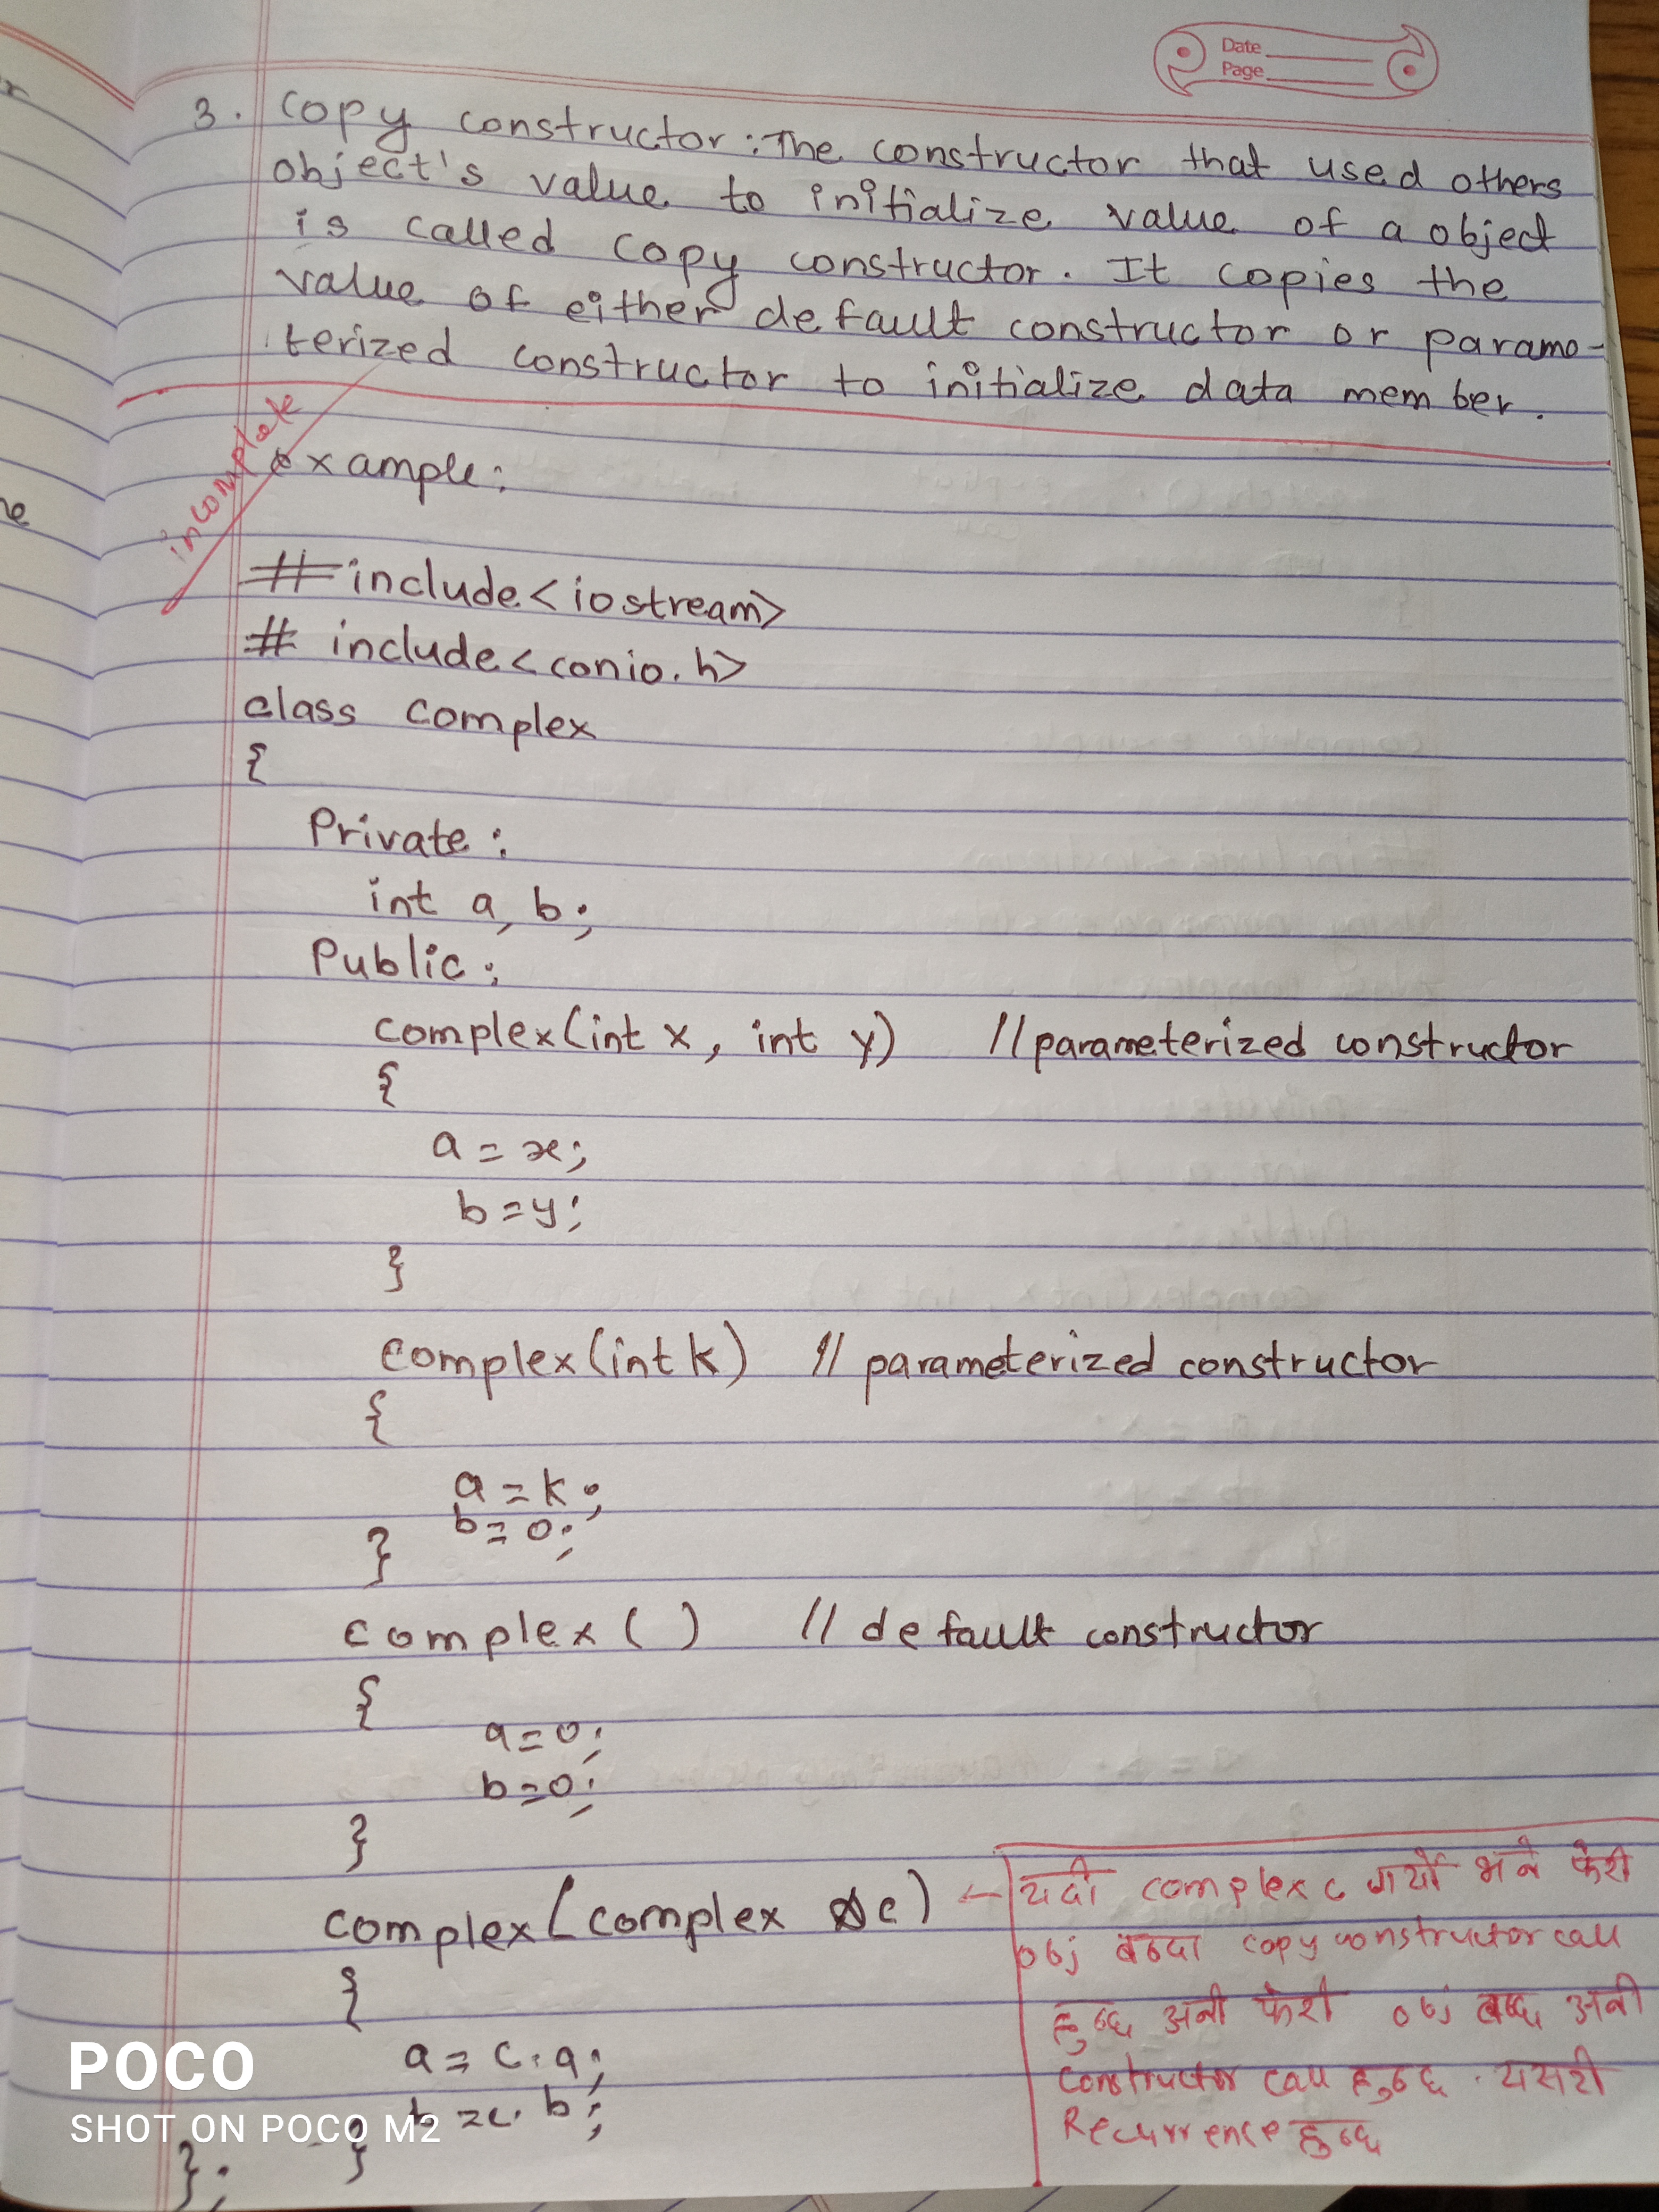 Date
Page
3. Copy constructor: The constructor that used others
object's value to initialize value of a object
is called copy constructor. It copies the
value of either default constructor or parame-
terized constructor to initialize data member.
incomplete
example:
#include<iostream>
# include<conio.h>
class complex
{
Private:
int a, b;
Public:
complex(int x, int y) //parameterized constructor
{
a = x;
b = y;
}
complex(int k) // parameterized constructor
{
a = k;
b = 0;
}
complex( ) // default constructor
{
a = 0;
b = 0;
}
complex(complex &c) ← यदी complex c गर्यो भने फेरी
obj बन्दा copy constructor call
हुन्छ अनी फेरी obj बन्छ अनी
constructor call हुन्छ . यसरी
Recurrence हुन्छ
{
a = c.a;
b = c.b;
}
};
POCO
SHOT ON POCO M2